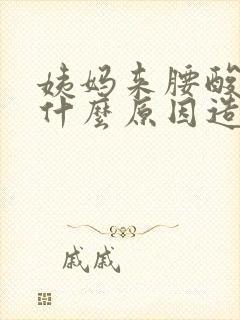 姨妈来腰酸
什麼原因造
戚戚